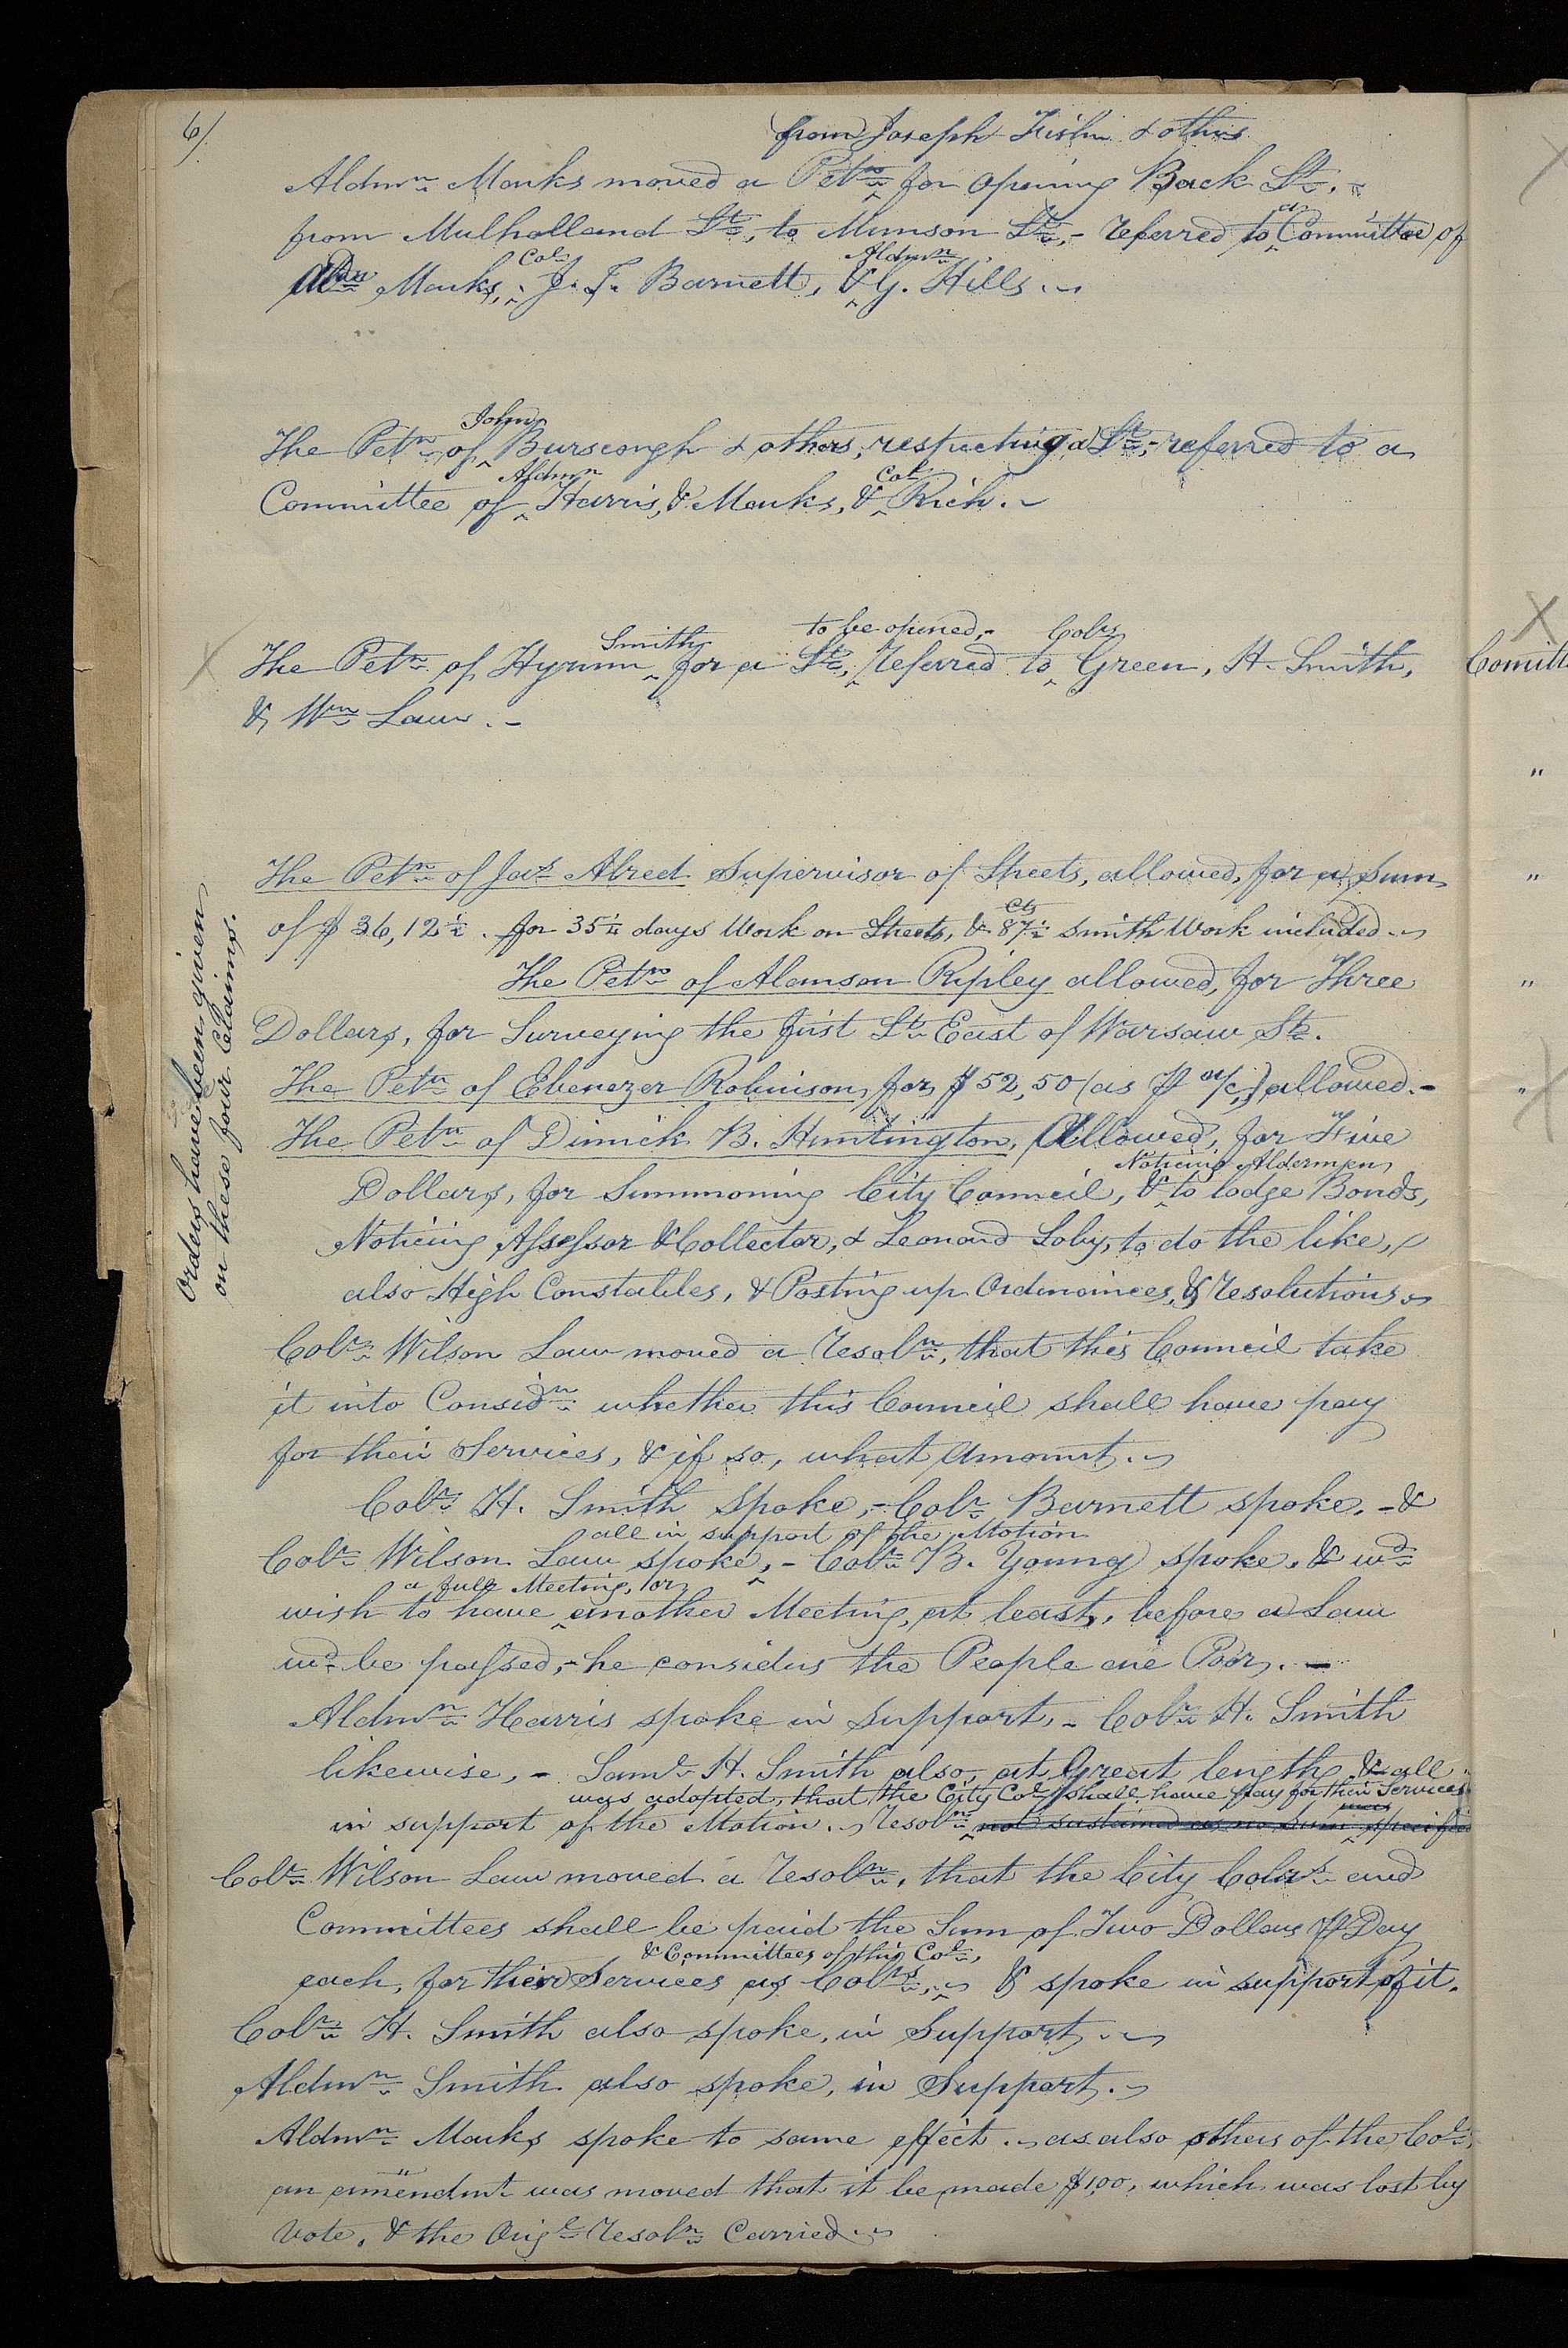 6/.
from Joseph Fisher & others
Aldmn. Marks moved a Petn. for opening Back St. -
from Mulholland St., to Munson St., - referred to a Committee of
Aldn Marks, Col. J. F. Barnett, & Aldmn. G. Hills. -
The Petn. of John Burscough & others, respecting a St., - referred to a
Committee of Aldmn Harris, & Marks, & Col. Rich. -
The Petn. of Hyrum Smith for a St., to be opened, - referred to Colrs Green, H. Smith,
& Wm. Law. -
The Petn. of Jas. Alred Supervisor of Streets, allowed, for a Sum
of $36,12½. for 35¼ days Work on Streets, & 87½ Cts Smith Work included. -
The Petn. of Alanson Ripley allowed, for Three
Dollars, for Surveying the first St. East of Warsaw St.
The Petn. of Ebenezer Robinson, for $52,50 (as ⅌ a/c,) allowed. -
The Petn. of Dimick B. Huntington, Allowed, for Five
Dollars, for Summoning City Council, & Noticing Aldermen to lodge Bonds,
Noticing Assessor & Collector, & Leonard Soby, to do the like, -
also High Constables, & Posting up Ordinances, & Resolutions. -
Orders have been given
on these four Claims.
Colr. Wilson Law moved a Resoln., that this Council take
it into Considn. whether this Council shall have pay
for their Services, & if so, what Amount. -
Colr. H. Smith spoke, - Colr. Barnett spoke, - &
Colr. Wilson Law spoke, all in support of the Motion - Colr. B. Young spoke, & wd.
wish to have a full Meeting, or another Meeting, at least, before a Law
wd. be passed, - he considers the People are Poor. -
Aldmn. Harris spoke in Support, - Colr. H. Smith
likewise, - Saml. H. Smith also, at Great length, & all
in support of the Motion. - Resoln. was adopted, that the City Col. shall have pay for their Services not sustained as no Sum was specified
Colr. Wilson Law moved a Resoln., that the City Colrs. and
Committees shall be paid the Sum of Two Dollars ⅌ Day
each, for their Services as Colrs., & Committees of this Col., - & spoke in support of it.
Colr. H. Smith also spoke, in Support. -
Aldmn. Smith also spoke, in Support. -
Aldmn. Marks spoke to same effect. - as also others of the Col.,
an amendmt was moved that it be made $1,00, which was lost by
Vote, & the Origl. Resoln. Carried. -
X
X
Comitt
"
"
"
"